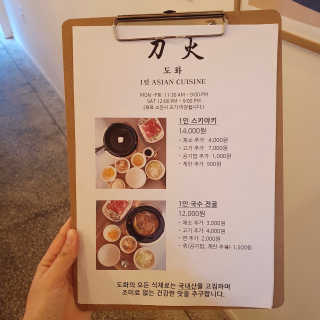 刀火
도화
1인 ASIAN CUISINE
MON -FRI 11:30 AM - 9:00 PM
SAT 12:00 PM - 9:00 PM
(재료 소진시 조기마감됩니다.)
1인 스키야키
14,000원
- 채소 추가 4,000원
- 고기 추가 7,000원
- 공기밥 추가 1,000원
- 계란 추가 500원
1인 국수 전골
12,000원
- 채소 추가 3,000원
- 고기 추가 4,000원
- 면 추가 2,000원
- 죽(공기밥, 계란 추가) 1,500원
도화의 모든 식재료는 국내산을 고집하며
조미료 없는 건강한 맛을 추구합니다.